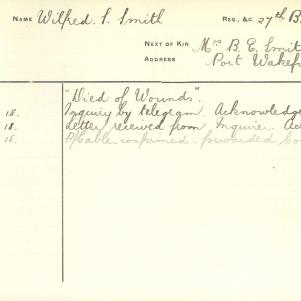 NAME Wilfred. S. Smith REG., &C. 27th B
NEXT OF KIN Mrs B. E. Smit
ADDRESS Port Wakef
"Died of Wounds".
18. Inquiry by telegram. Acknowledge
18. Letter received from Inquirer. Ac
18. Cable confirmed. forwarded Co